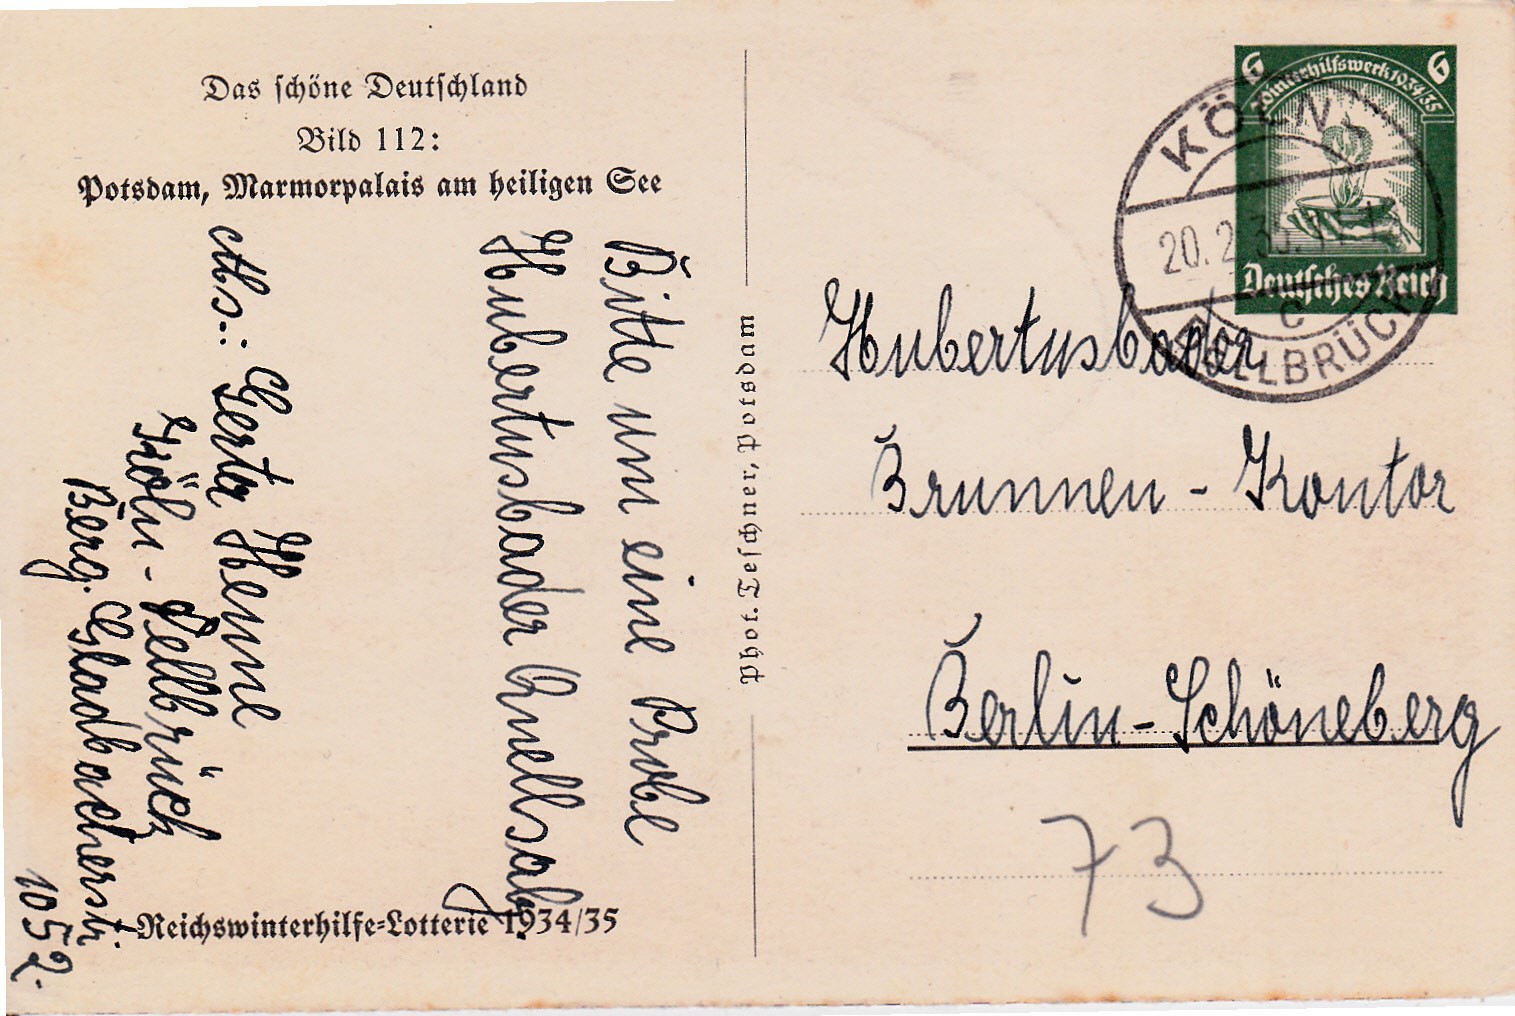 Das schöne Deutschland
Bild 112:
Potsdam, Marmorpalais am heiligen See
Bitte um eine Probe
Hubertusbader Quellsalz
Abs.: Gerta Henne
Köln-Dellbrück
Berg. Gladbacherstr.
1052.
Reichswinterhilfe-Lotterie 1934/35
Phot. Teschner, Potsdam
6 6
Winterhilfswerk 1934/35
Deutsches Reich
KÖLN
20.2.35.
c
DELLBRÜCK
Hubertusbader
Brunnen-Kontor
Berlin-Schöneberg
73